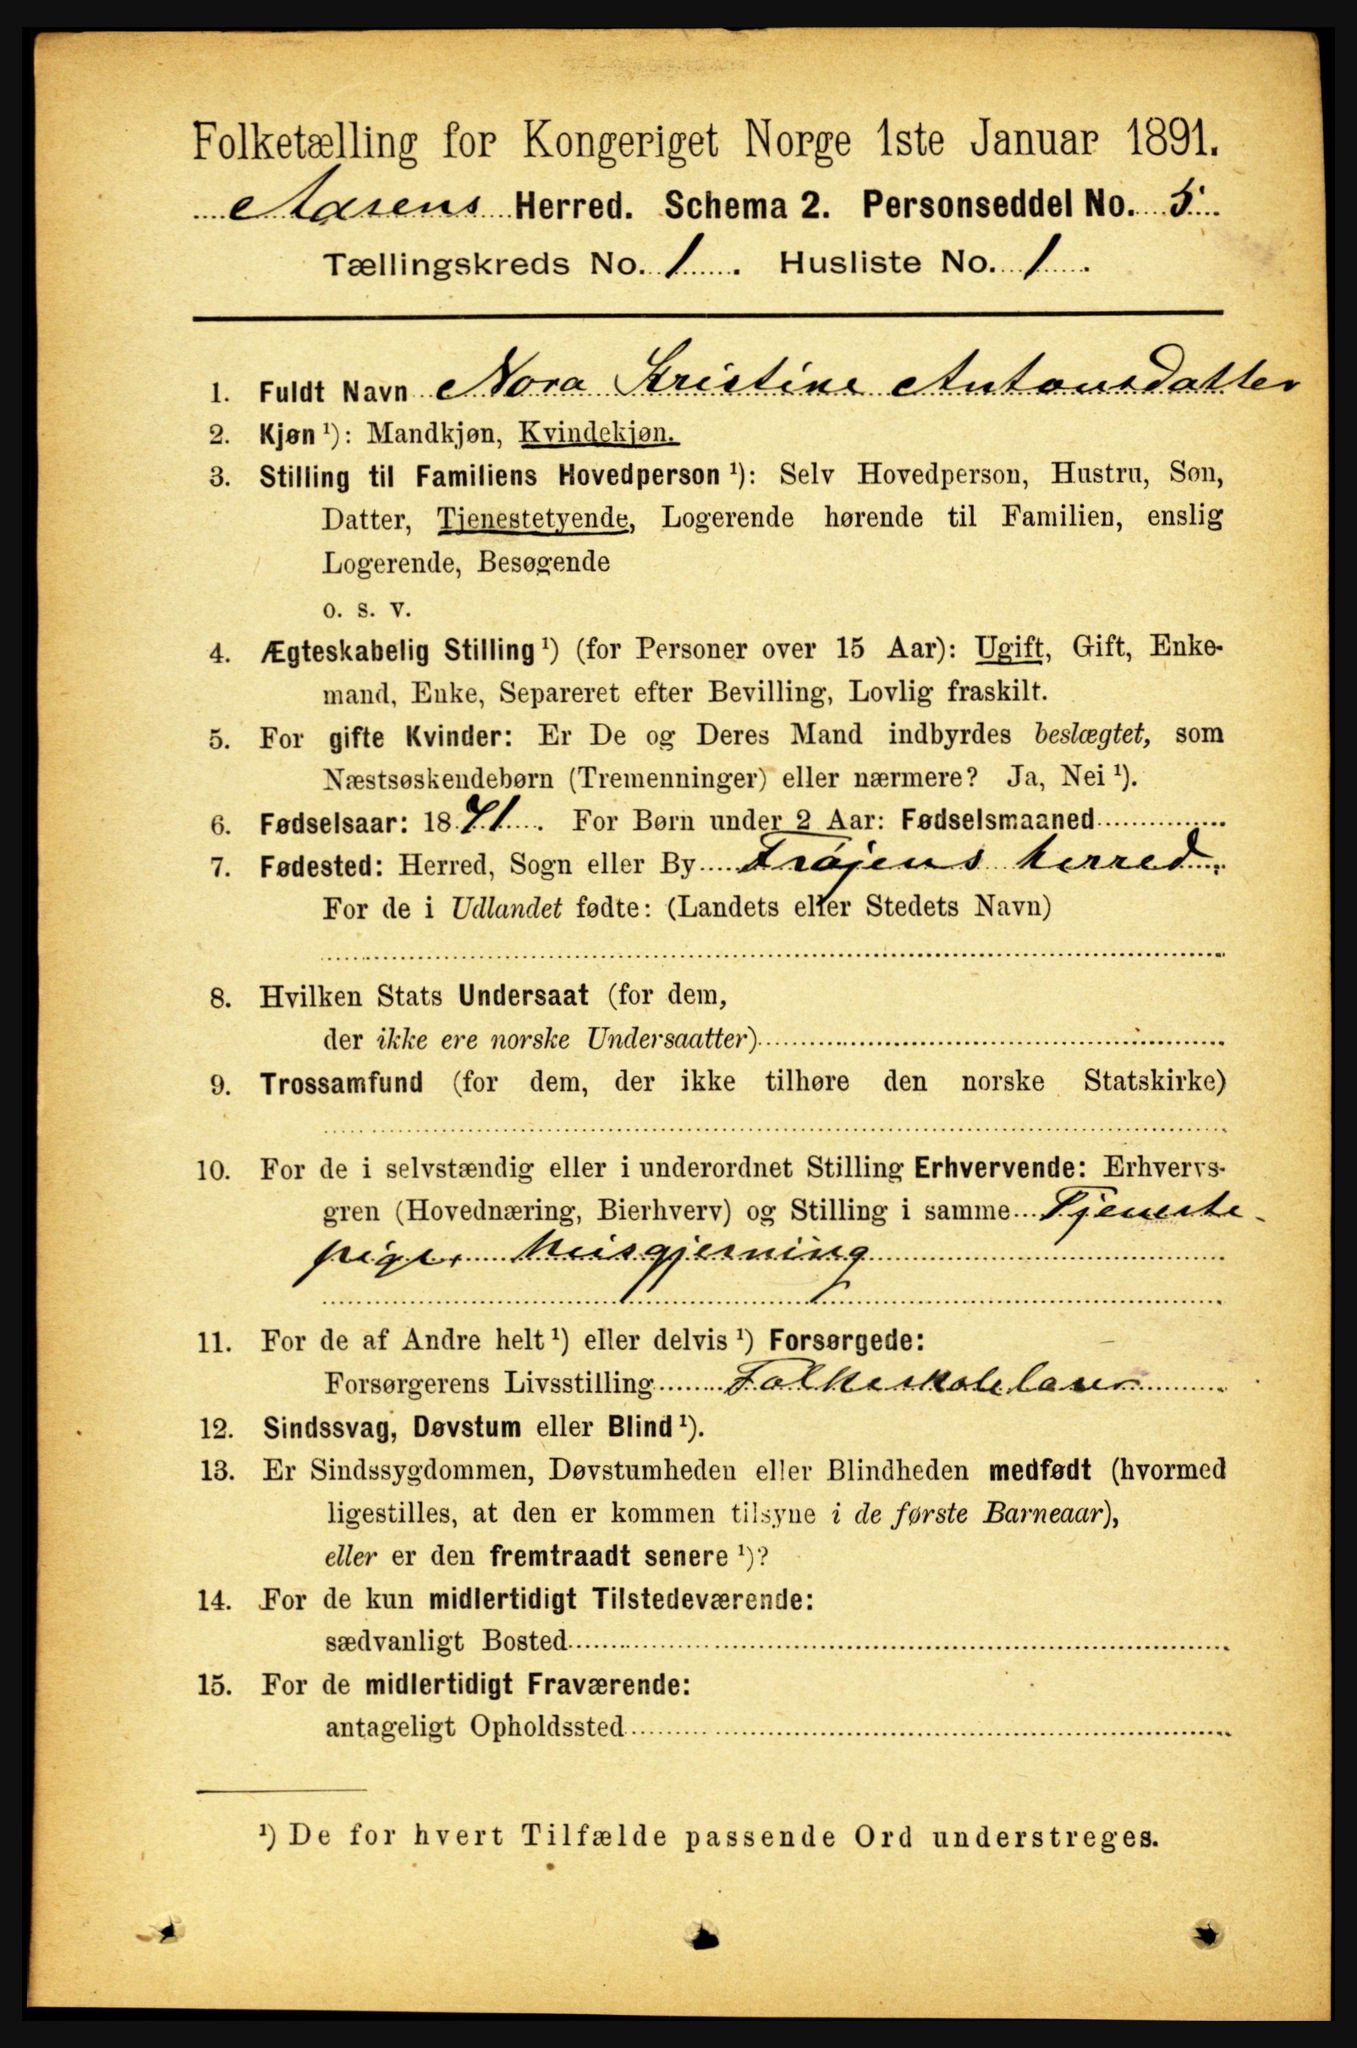 Folketælling for Kongeriget Norge 1ste Januar 1891.
Aasens Herred. Schema 2. Personseddel No. 5
Tællingskreds No. 1. Husliste No. 1.
1. Fuldt Navn Nora Kristine Antonsdatter
2. Kjøn ¹): Mandkjøn, Kvindekjøn.
3. Stilling til Familiens Hovedperson ¹): Selv Hovedperson, Hustru, Søn,
Datter, Tjenestetyende, Logerende hørende til Familien, enslig
Logerende, Besøgende
o. s. v.
4. Ægteskabelig Stilling ¹) (for Personer over 15 Aar): Ugift, Gift, Enke-
mand, Enke, Separeret efter Bevilling, Lovlig fraskilt.
5. For gifte Kvinder: Er De og Deres Mand indbyrdes beslægtet, som
Næstsøskendebørn (Tremenninger) eller nærmere? Ja, Nei ¹).
6. Fødselsaar: 1871. For Børn under 2 Aar: Fødselsmaaned
7. Fødested: Herred, Sogn eller By Frøjens herred.
For de i Udlandet fødte: (Landets eller Stedets Navn)
8. Hvilken Stats Undersaat (for dem,
der ikke ere norske Undersaatter)
9. Trossamfund (for dem, der ikke tilhøre den norske Statskirke)
10. For de i selvstændig eller i underordnet Stilling Erhvervende: Erhvervs-
gren (Hovednæring, Bierhverv) og Stilling i samme Tjeneste-
pige, husgjerning
11. For de af Andre helt ¹) eller delvis ¹) Forsørgede:
Forsørgerens Livsstilling Folkeskolelærer
12. Sindssvag, Døvstum eller Blind ¹).
13. Er Sindssygdommen, Døvstumheden eller Blindheden medfødt (hvormed
ligestilles, at den er kommen tilsyne i de første Barneaar),
eller er den fremtraadt senere ¹)?
14. For de kun midlertidigt Tilstedeværende:
sædvanligt Bosted
15. For de midlertidigt Fraværende:
antageligt Opholdssted
¹) De for hvert Tilfælde passende Ord understreges.